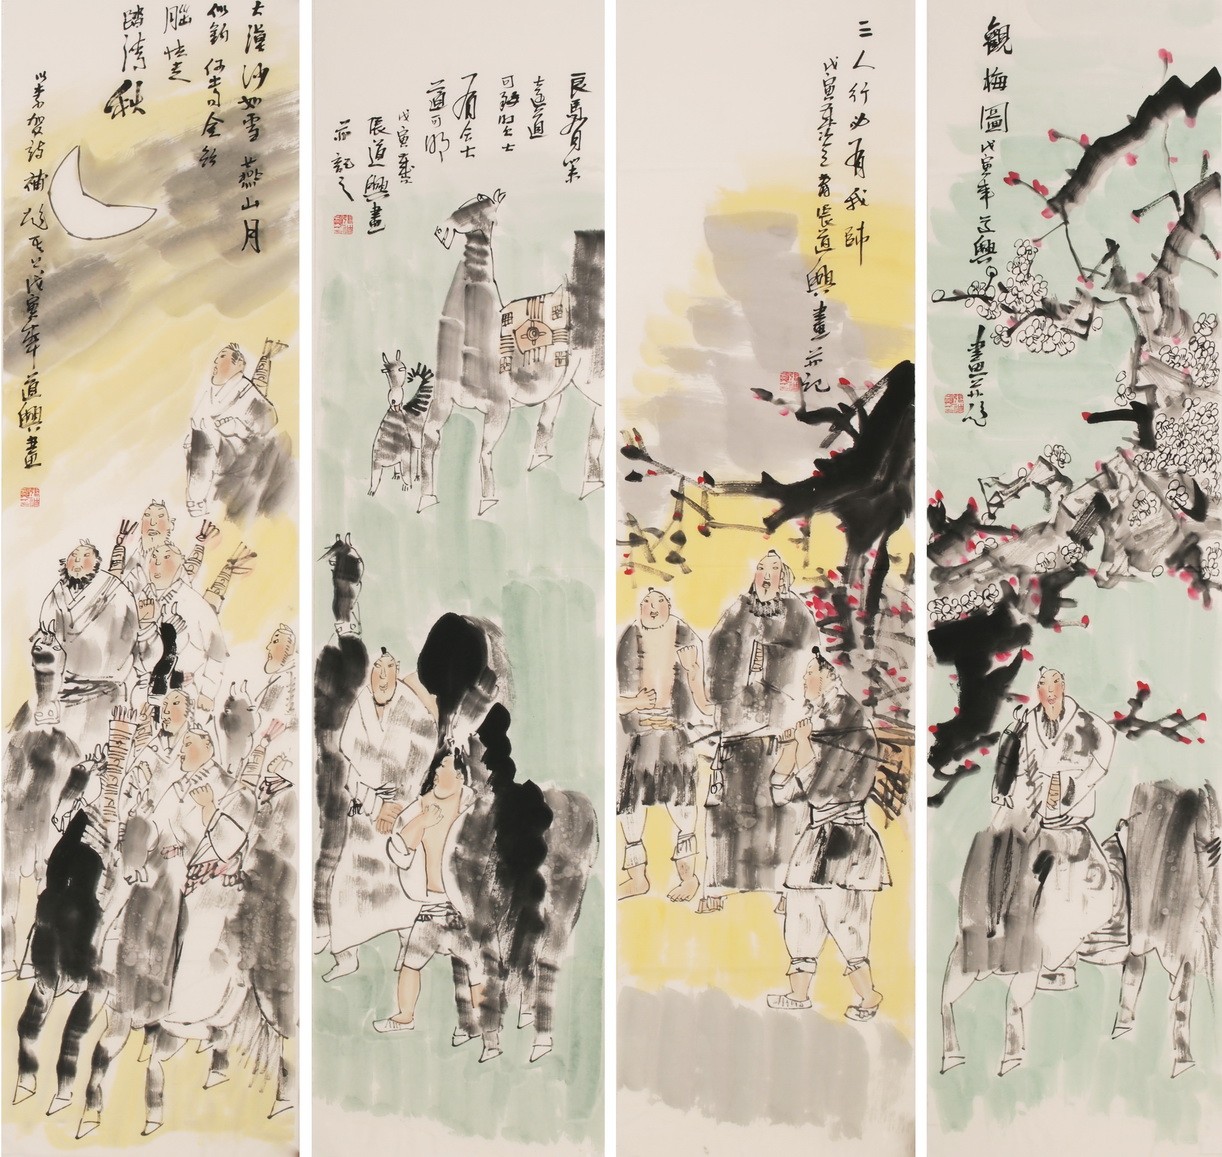 大漠沙如雪燕山月
似鈎何當金絡
腦快走
踏清
秋
以李賀詩補題 戊寅年道興畫
良馬有策
遠道
可致賢士
有合士
道可明
戊寅
張道興畫
并記之
三人行必有我師
戊寅年 張道興畫并記
觀梅圖 戊寅年道興
畫并題